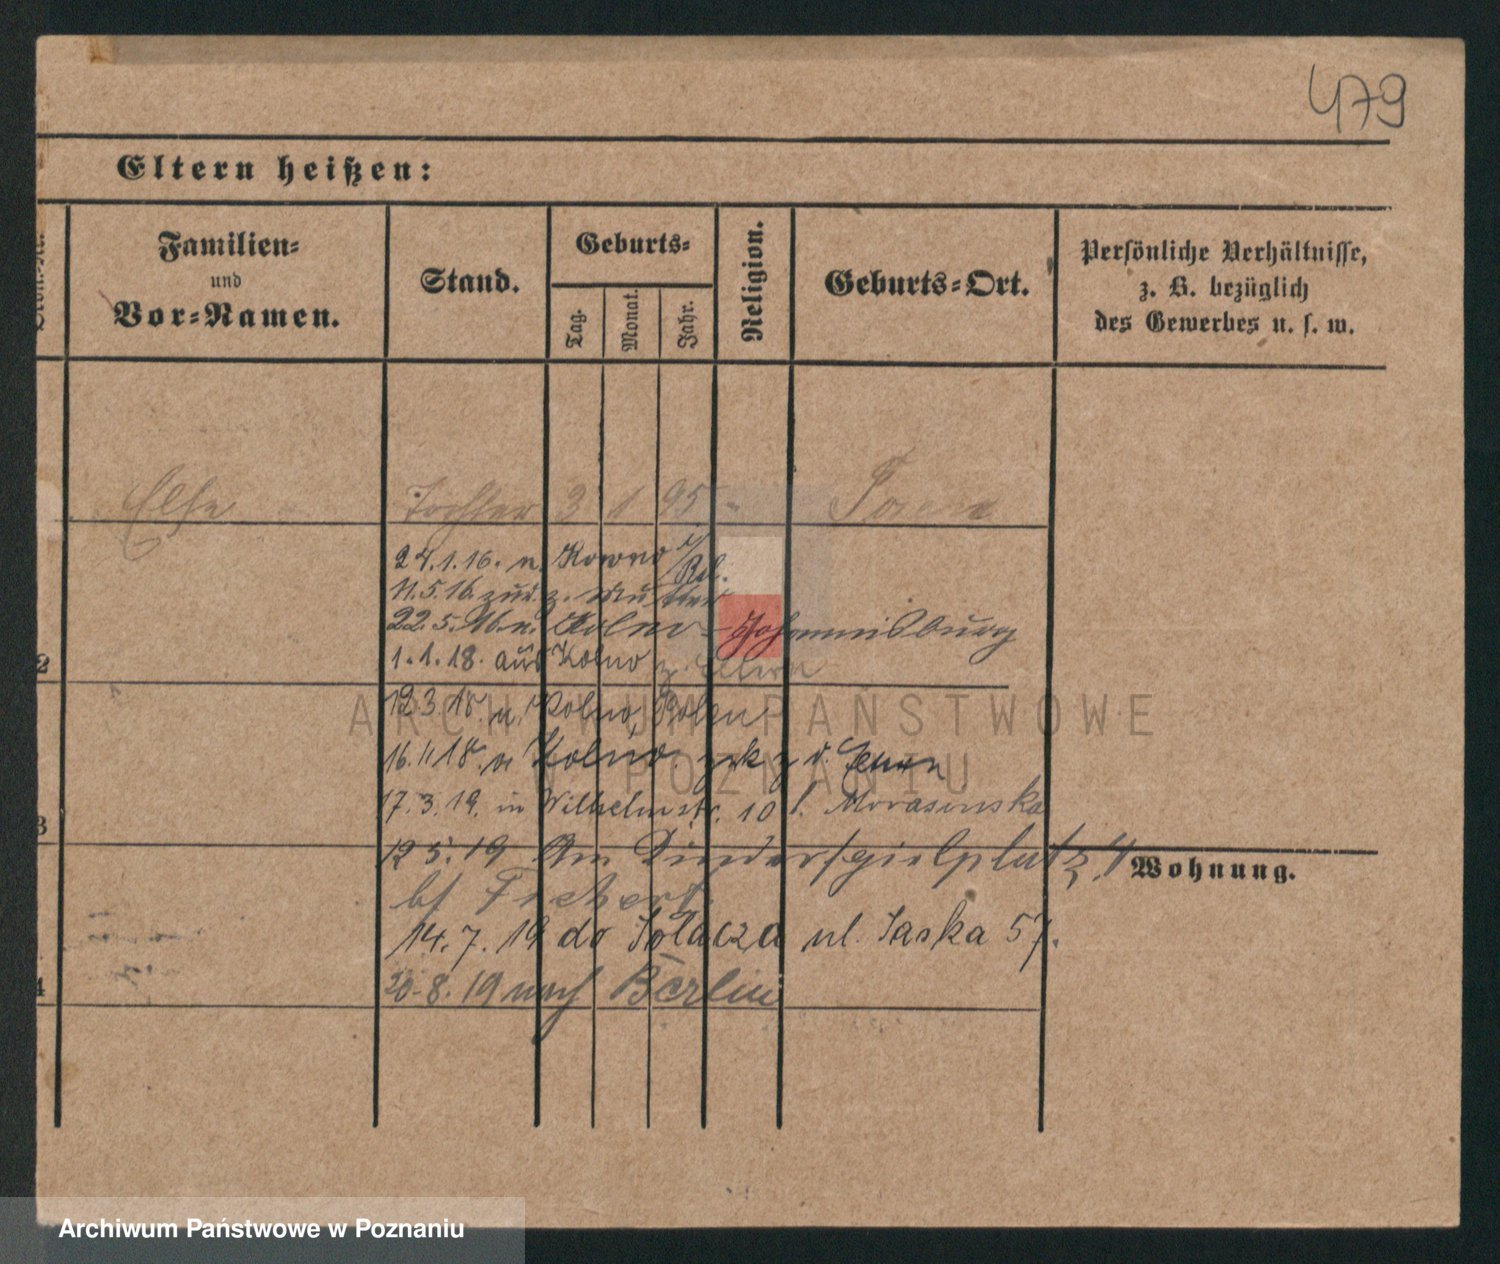 479
Eltern heißen:
Familien=
und
Vor=Namen.
Stand.
Geburts=
Tag.
Monat.
Jahr.
Religion.
Geburts=Ort.
Persönliche Verhältnisse,
z. B. bezüglich
des Gewerbes u. s. w.
Else Tochter 3 1 95 "
24.1.16. n. Kowno
11.5.16 zur. z. Mutter
22.5.16. n. Kolno - Johannisburg
1.1.18. aus Kolno z. Eltern
2
12.3.18. n. Kolno, Polen
16.11.18. v. Kolno. zrk z d. Eltern
17.3.19. in Wilhelmstr. 10 b.
3
12.5.19 Am Kinderspielplatz 4
Wohnung.
bf
14.7.19 do Sołacza ul. Saska 57.
20.8.19 nach Berlin
4
ARCHIWUM PAŃSTWOWE
W POZNANIU
Archiwum Państwowe w Poznaniu